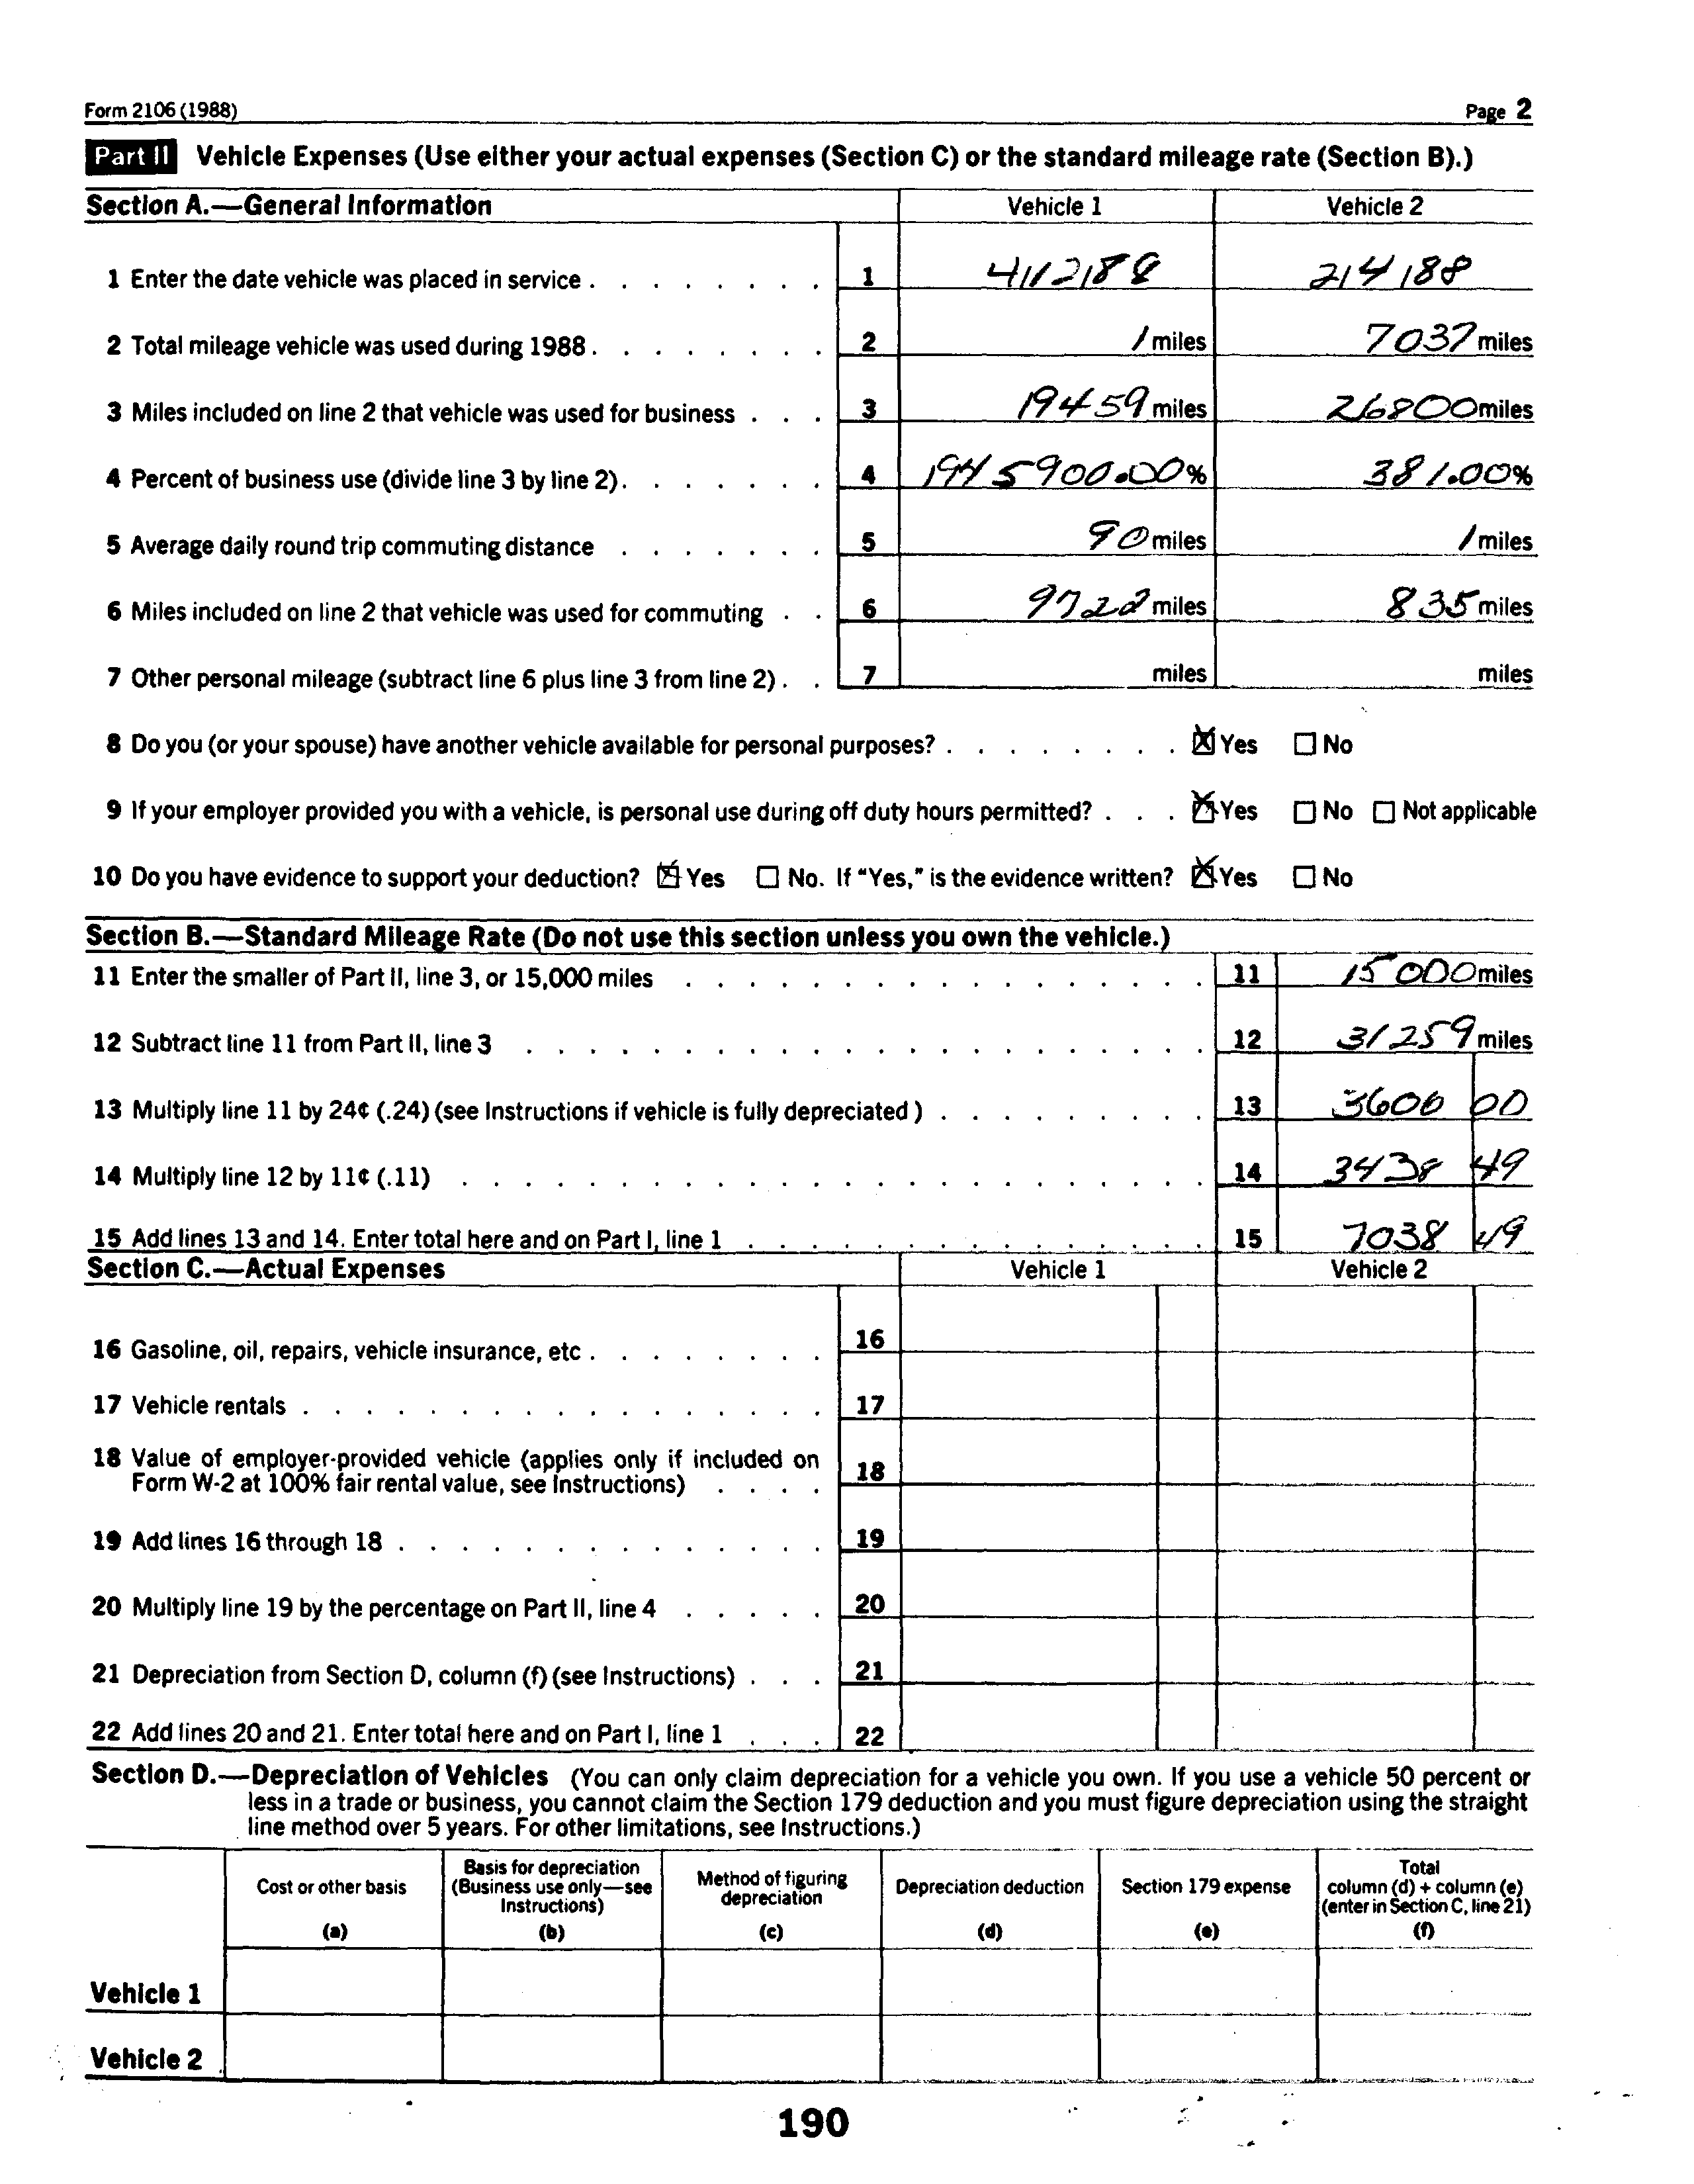 Form 2106 (1988) Page 2
Part II Vehicle Expenses (Use either your actual expenses (Section C) or the standard mileage rate (Section B).)
Section A.—General Information Vehicle 1 Vehicle 2
1 Enter the date vehicle was placed in service . . . . . . . . 1 4/12/88 2/4/88
2 Total mileage vehicle was used during 1988 . . . . . . . . 2 1 miles 7037 miles
3 Miles included on line 2 that vehicle was used for business . . . 3 19459 miles 26800 miles
4 Percent of business use (divide line 3 by line 2) . . . . . . . 4 1945900.00% 381.00%
5 Average daily round trip commuting distance . . . . . . . 5 90 miles 1 miles
6 Miles included on line 2 that vehicle was used for commuting . . 6 9722 miles 835 miles
7 Other personal mileage (subtract line 6 plus line 3 from line 2) . . 7 miles miles
8 Do you (or your spouse) have another vehicle available for personal purposes? . . . . . . . . ☒ Yes ☐ No
9 If your employer provided you with a vehicle, is personal use during off duty hours permitted? . . . ☒ Yes ☐ No ☐ Not applicable
10 Do you have evidence to support your deduction? ☒ Yes ☐ No. If "Yes," is the evidence written? ☒ Yes ☐ No
Section B.—Standard Mileage Rate (Do not use this section unless you own the vehicle.)
11 Enter the smaller of Part II, line 3, or 15,000 miles . . . . . . . . . . . . . . . . . 11 15000 miles
12 Subtract line 11 from Part II, line 3 . . . . . . . . . . . . . . . . . . . . . . 12 31259 miles
13 Multiply line 11 by 24¢ (.24) (see Instructions if vehicle is fully depreciated) . . . . . . . . . 13 3600 00
14 Multiply line 12 by 11¢ (.11) . . . . . . . . . . . . . . . . . . . . . . . . 14 3438 49
15 Add lines 13 and 14. Enter total here and on Part I, line 1 . . . . . . . . . . . . . . . 15 7038 49
Section C.—Actual Expenses Vehicle 1 Vehicle 2
16 Gasoline, oil, repairs, vehicle insurance, etc . . . . . . . . 16
17 Vehicle rentals . . . . . . . . . . . . . . . . . 17
18 Value of employer-provided vehicle (applies only if included on
Form W-2 at 100% fair rental value, see Instructions) . . . . 18
19 Add lines 16 through 18 . . . . . . . . . . . . . . 19
20 Multiply line 19 by the percentage on Part II, line 4 . . . . . 20
21 Depreciation from Section D, column (f) (see Instructions) . . . 21
22 Add lines 20 and 21. Enter total here and on Part I, line 1 . . . 22
Section D.—Depreciation of Vehicles (You can only claim depreciation for a vehicle you own. If you use a vehicle 50 percent or
less in a trade or business, you cannot claim the Section 179 deduction and you must figure depreciation using the straight
line method over 5 years. For other limitations, see Instructions.)
Cost or other basis
(a)
Basis for depreciation
(Business use only—see
Instructions)
(b)
Method of figuring
depreciation
(c)
Depreciation deduction
(d)
Section 179 expense
(e)
Total
column (d) + column (e)
(enter in Section C, line 21)
(f)
Vehicle 1
Vehicle 2
190